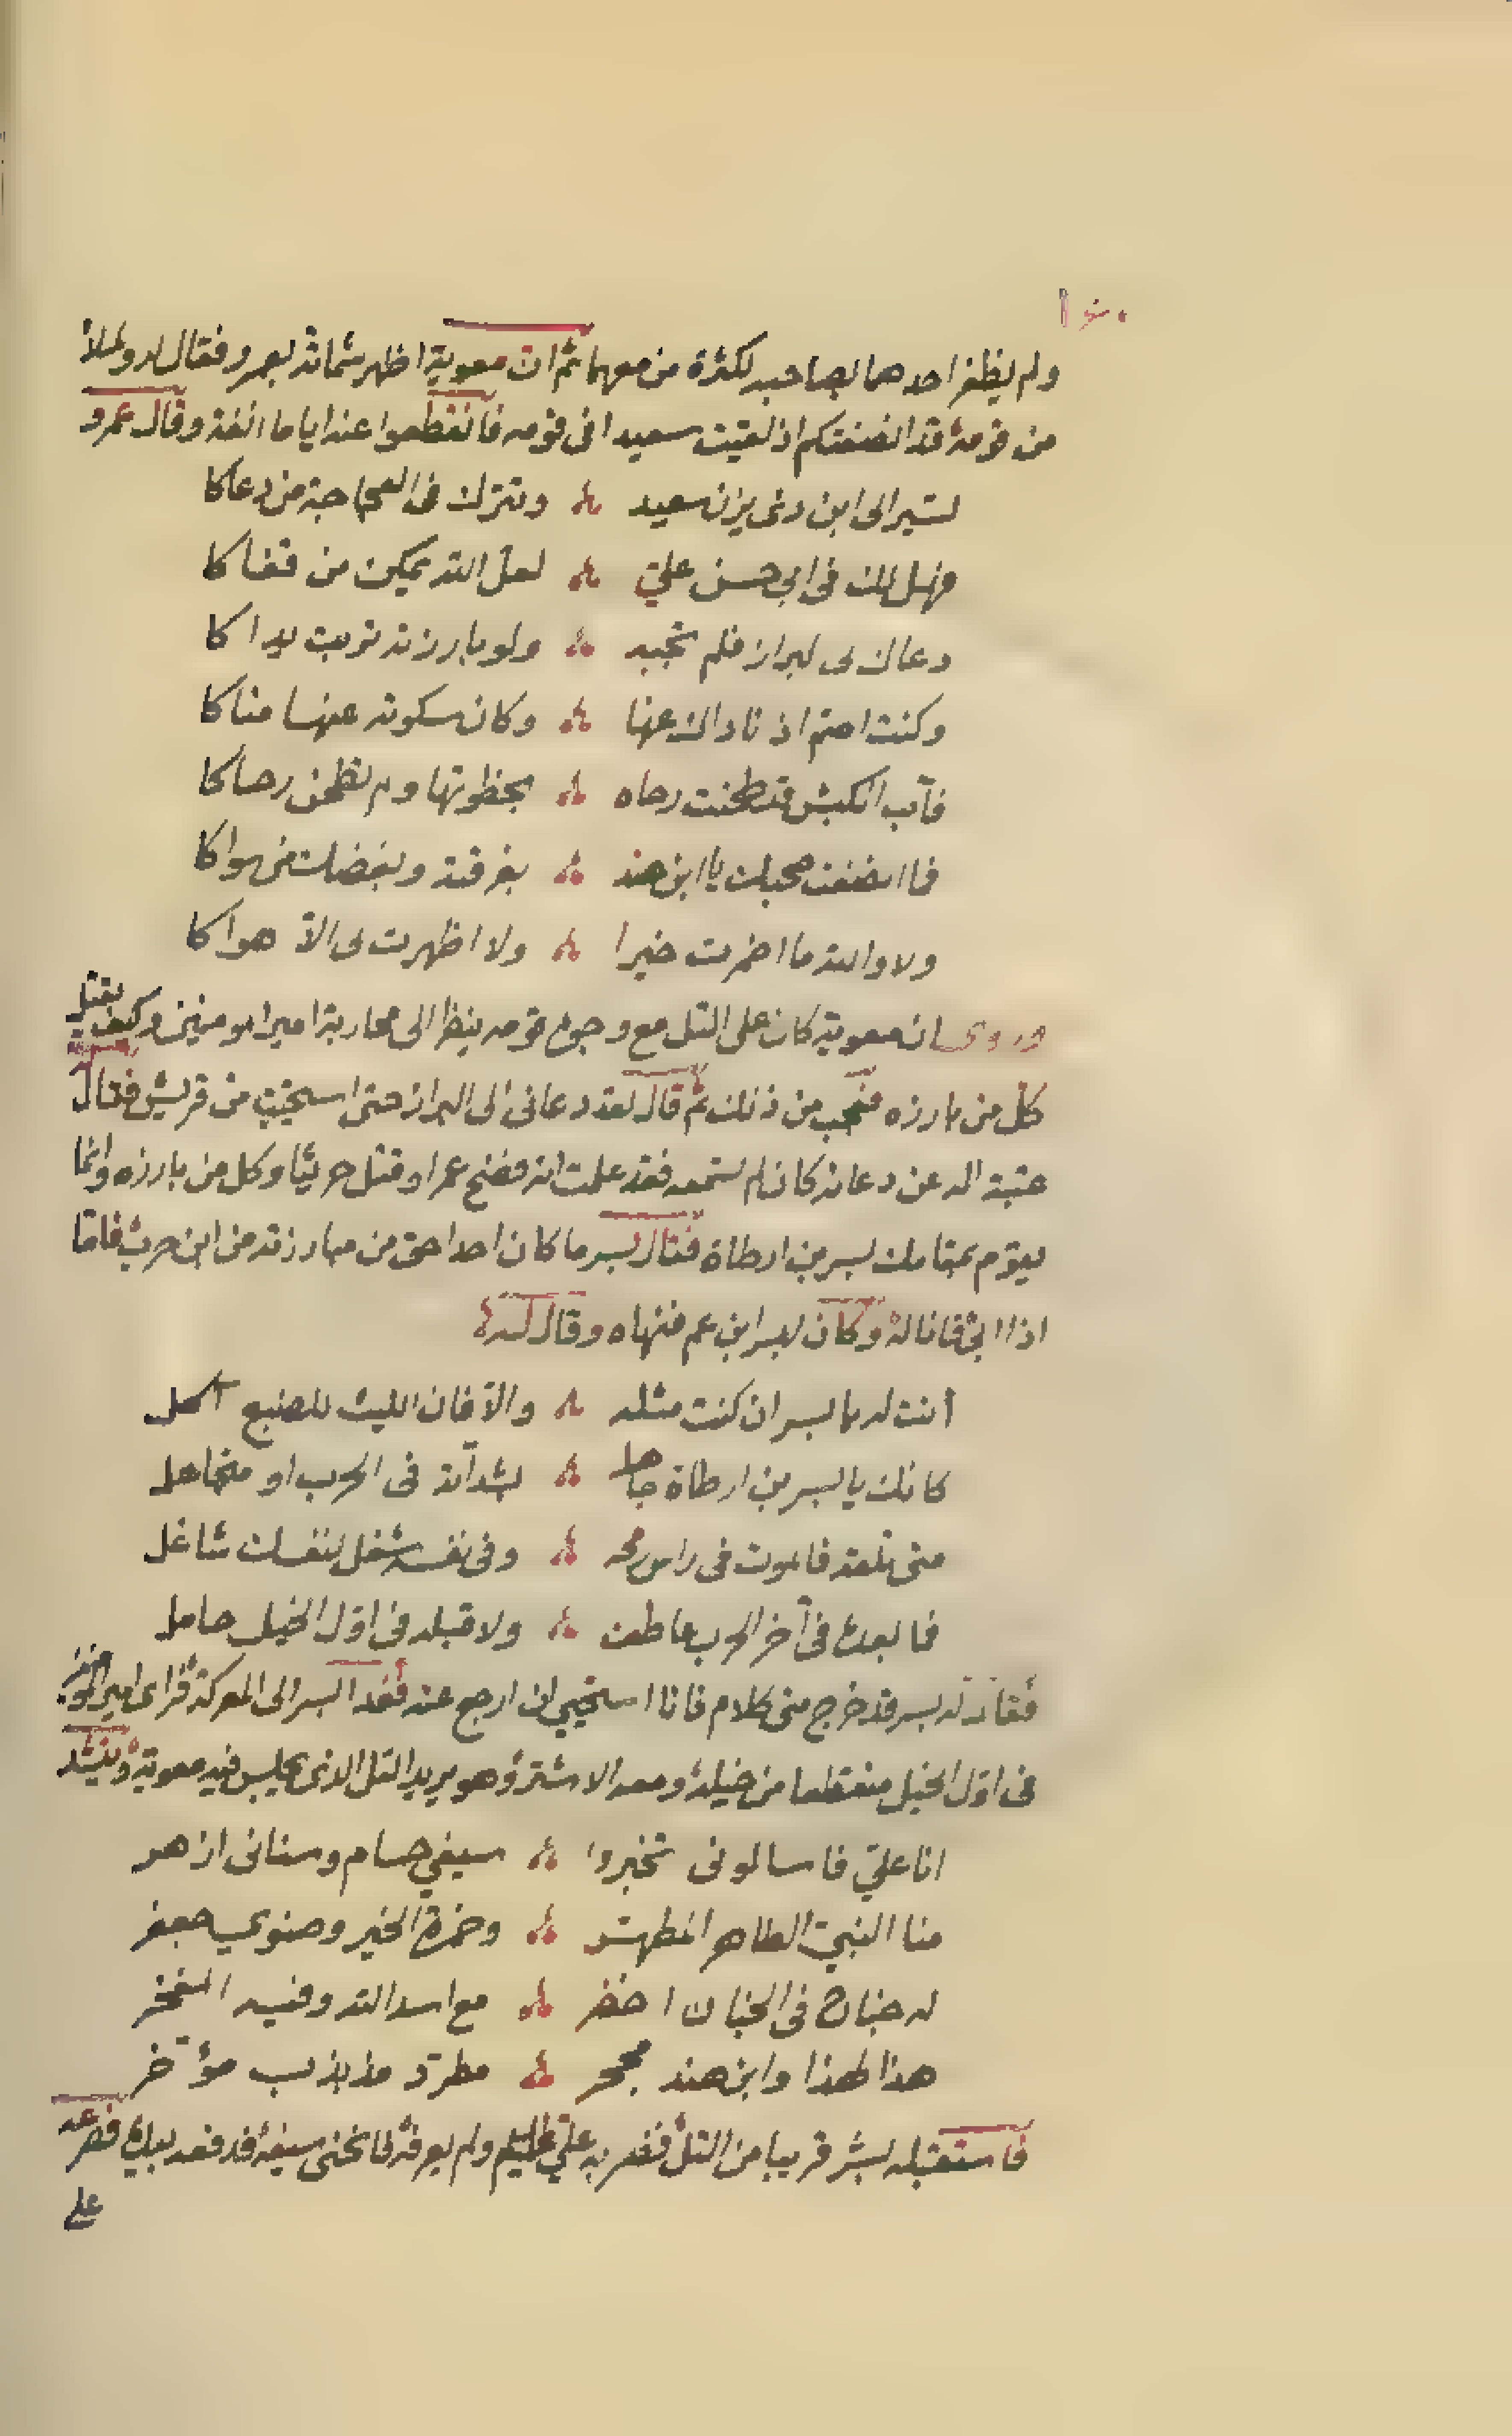 ولم يظفر احدهما بصاحبه لكثرة من معهما ثم ان معوية اظهر شماتة بعمرو فقال له ولملأ
من قومه قد انصفتكم اذ لقيت سعيدا في قومه فانقطعوا عنه اياما انفة وقال عمرو
تسير الى ابن ذى يزن سعيد وتترك فى العجاجة من دعاكا
فهل لك فى ابى حسن على لعل الله يمكن من قفاكا
دعاك الى البراز فلم تجبه ولو بارزته تربت يداكا
وكنت اصم اذ ناداك عنها وكان سكوته عنها مناكا
فآب الكبش قد طحنت رحاه بخطوتها ولم تطحن رحاكا
فما انصفت صحبك يا ابن هند بفرقة وبغضك من سواكا
ولا والله ما اضمرت خيرا ولا اظهرت لى الا هواكا
وروى ان معوية كان على التل مع وجوه قومه ينظر الى محاربة امير المومنين وكيف يقتل
كل من بارزه فتعجب من ذلك ثم قال لقد دعانى الى البراز حتى استحييت من قريش فقال
عتبة اله عن دعائه كانك لم تسمعه فقد علمت انه فضح عمرا وقتل حريثا وكل من بارزه وانما
يقوم بمقامك بسر بن ارطاة فقال بسر ما كان احد احق من مبارزته من ابن حرب فاما
اذا ابى فانا له وكان لبسر ابن عم فنهاه وقال له
أنت له يا بسر ان كنت مثله والا فان الليث للضبع آكل
كانك يا بسر بن ارطاة جاهل بشدآته فى الحرب او متجاهل
متى تلقه فالموت فى راس رمحه وفى نفسه شغل لنفسك شاغل
فما بعده فى آخر الحرب عاطف ولا قبله فى اول الخيل حامل
فقال له بسر قد خرج منى كلام فانا استحيي ان ارجع عنه فغدا بسر الى المعركة فراى امير المومنين
فى اول الخيل منقطعا من خيله ومعه الاشتر وهو يريد التل الذى يجلس فيه معوية وينشد
انا على فاسالونى تخبروا سيفي حسام وسنانى ازهر
منا النبى الطاهر المطهر وحمزة الخير وصنوي جعفر
له جناح فى الجنان اخضر مع اسد الله وفيه المفخر
هذا لهذا وابن هند محجر مطرد مذبذب مؤخر
فاستقبله بسر قريبا من التل فضربه على عليلم ولم يعرفه فانحنى سيفه قد فقد بيده فصرعه
على